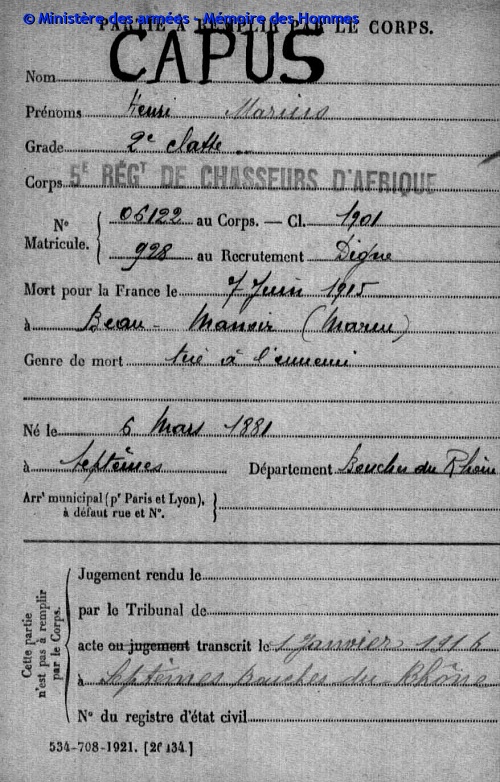 © Ministère des armées - Mémoire des Hommes
PARTIE À REMPLIR PAR LE CORPS.
CAPUS
Nom
Prénoms Henri Marius
Grade 2e classe
Corps 5E RÉGT DE CHASSEURS D'AFRIQUE
N° Matricule. { 06122 au Corps. — Cl. 1901
928 au Recrutement Digne
Mort pour la France le 7 Juin 1915
à Beau-Manoir (Marne)
Genre de mort tué à l'ennemi
Né le 6 Mars 1881
à Septèmes Département Bouches du Rhône
Arrt municipal (pr Paris et Lyon), }
à défaut rue et N°.
Cette partie n'est pas à remplir par le Corps.
Jugement rendu le
par le Tribunal de
acte ou jugement transcrit le 1 Janvier 1916
à Septèmes Bouches du Rhône
N° du registre d'état civil
534-708-1921. [26434]